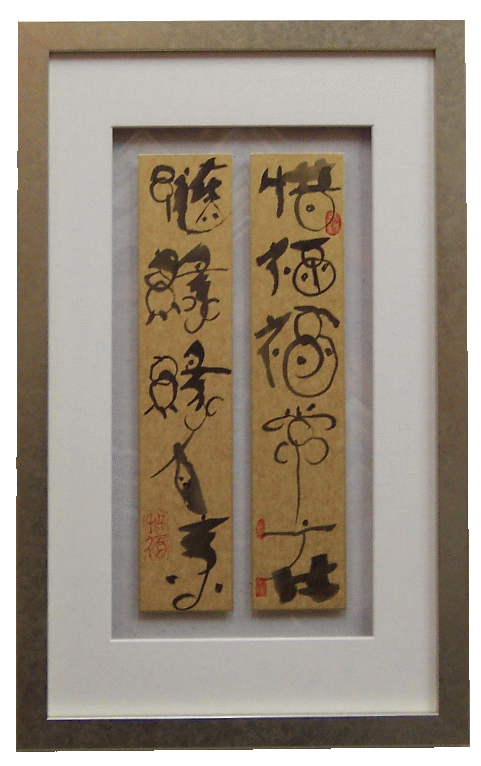 惜福福常在
隨緣緣自來
惜福